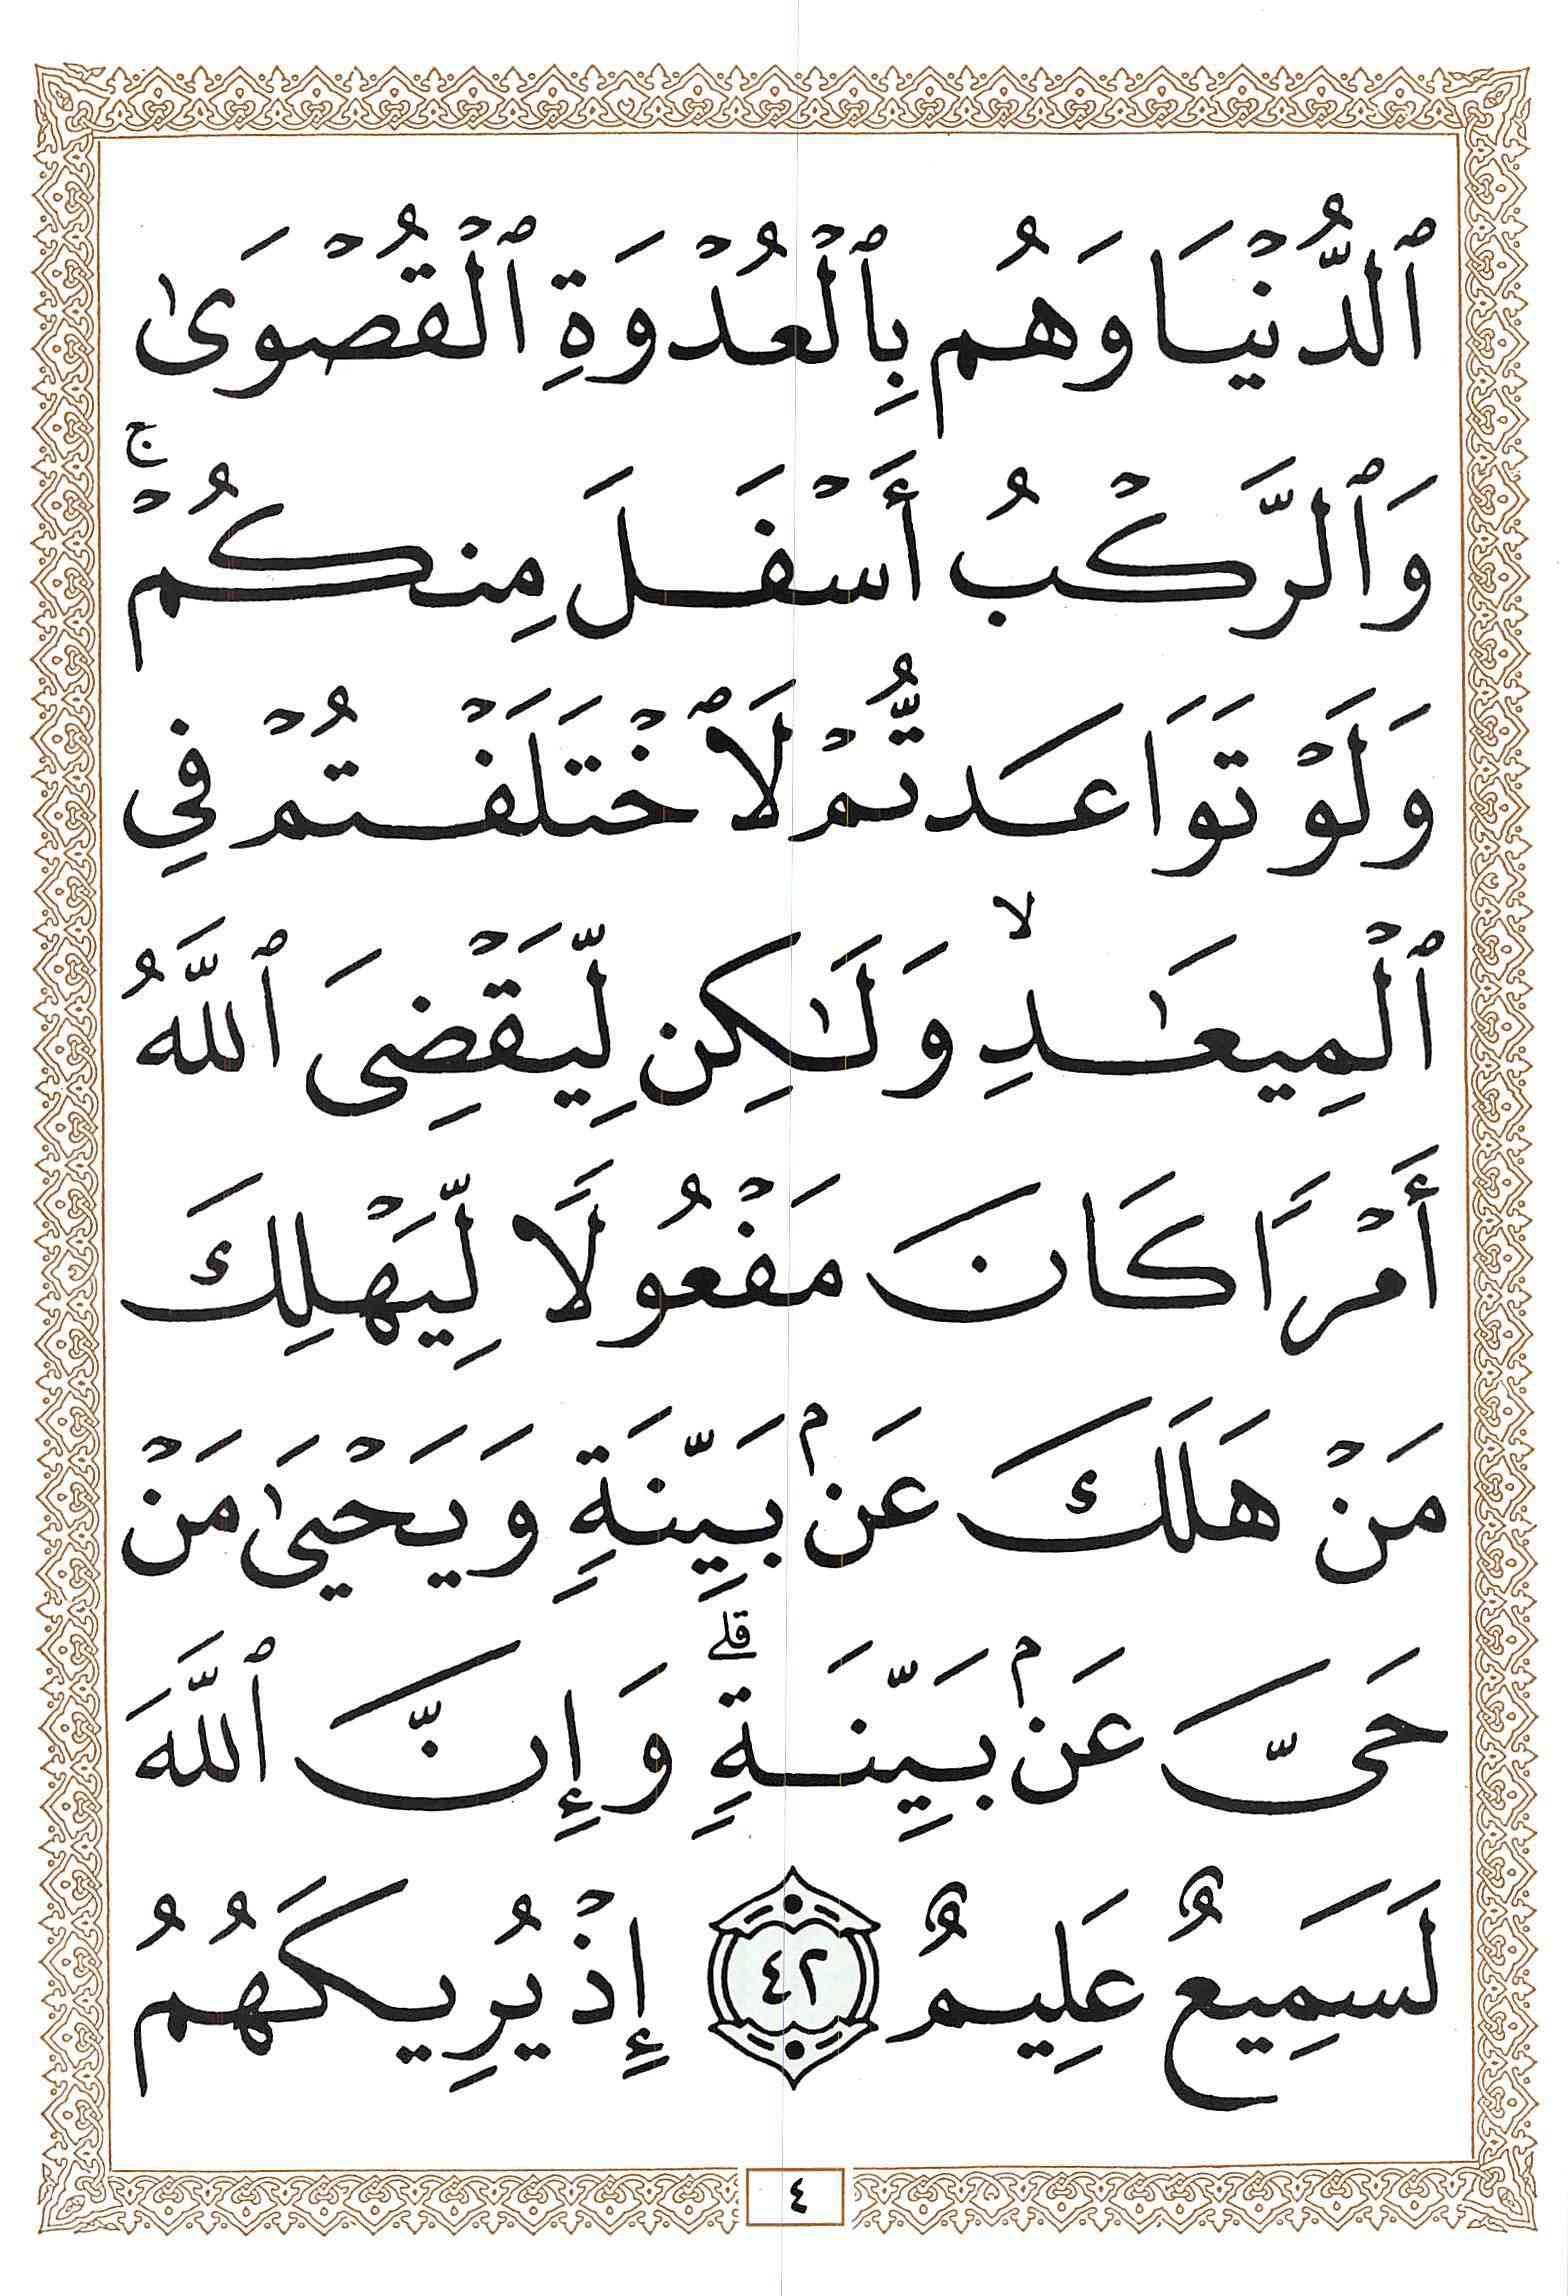 ٱلدُّنْيَا وَهُم بِٱلْعُدْوَةِ ٱلْقُصْوَىٰ
وَٱلرَّكْبُ أَسْفَلَ مِنكُمْ ۚ
وَلَوْ تَوَاعَدتُّمْ لَٱخْتَلَفْتُمْ فِى
ٱلْمِيعَـٰدِ ۙ وَلَـٰكِن لِّيَقْضِىَ ٱللَّهُ
أَمْرًا كَانَ مَفْعُولًا لِّيَهْلِكَ
مَنْ هَلَكَ عَنۢ بَيِّنَةٍ وَيَحْيَىٰ مَنْ
حَىَّ عَنۢ بَيِّنَةٍ ۗ وَإِنَّ ٱللَّهَ
لَسَمِيعٌ عَلِيمٌ ٤٢ إِذْ يُرِيكَهُمُ
٤